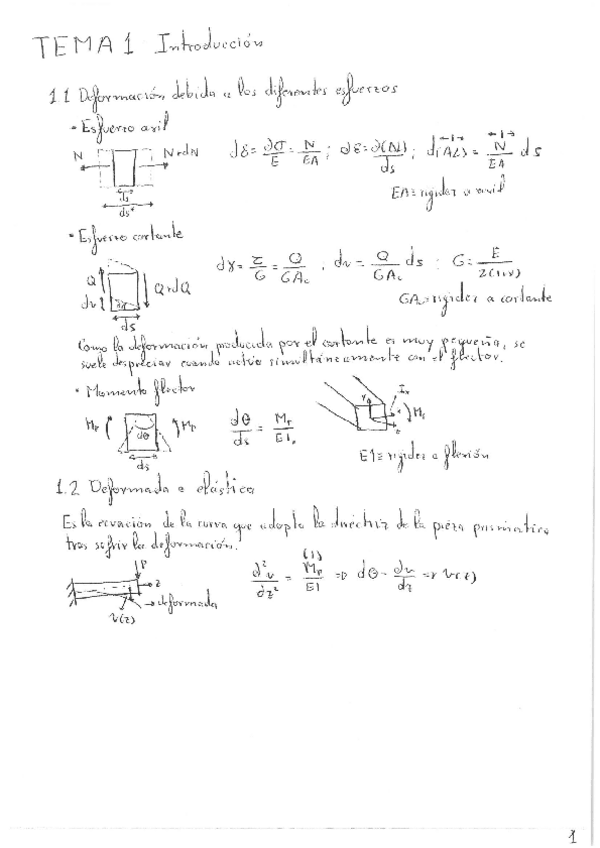 TEMA 1 Introducción
1.1 Deformación debida a los diferentes esfuerzos
• Esfuerzo axil
N N+dN dε = ∂σ/E = N/EA ; dε = ∂(ΔL)/ds ; d(ΔL) = N/EA ds
ds
EA = rigidez a axil
• Esfuerzo cortante
Q Q+dQ dγ = τ/G = Q/GAc ; dv = Q/GAc ds ; G = E/2(1+ν)
dv
ds
GA = rigidez a cortante
Como la deformación producida por el cortante es muy pequeña, se
suele despreciar cuando actúa simultáneamente con el flector.
• Momento flector
MF dθ MF dθ/ds = MF/EI
ds
EI = rigidez a flexión
1.2 Deformada o elástica
Es la ecuación de la curva que adopta la directriz de la pieza prismática
tras sufrir la deformación.
P z d²v/dz² = MF/EI (1) => dθ = dv/dz => v(z)
deformada
v(z)
1